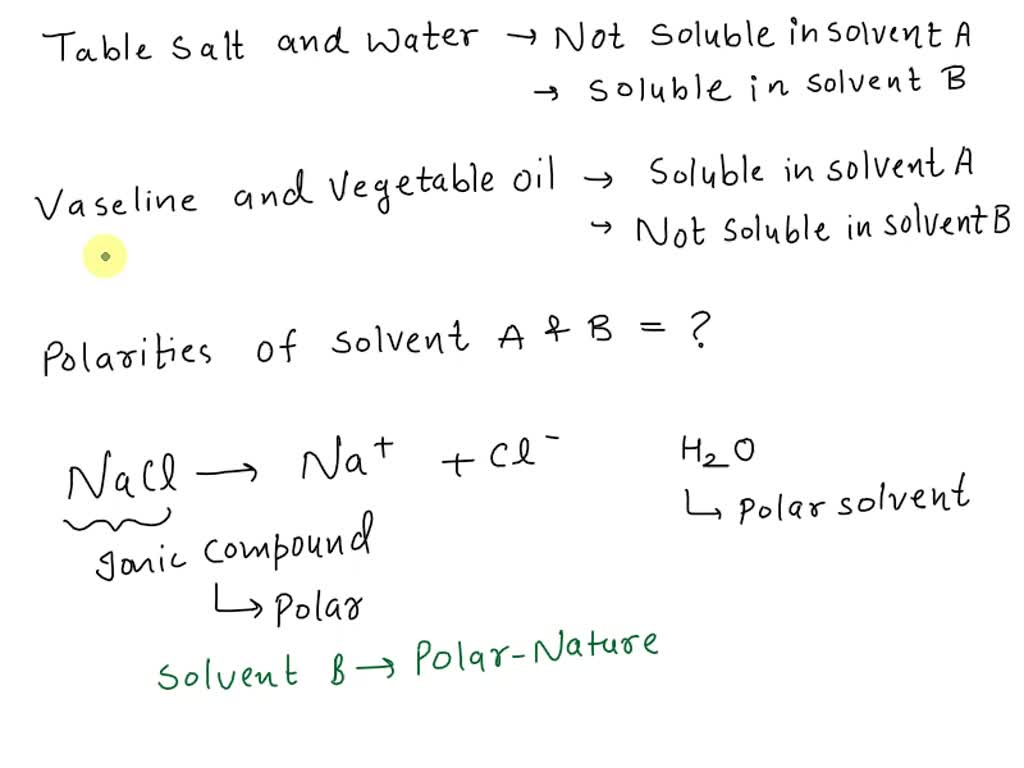 Table Salt and Water → Not Soluble in solvent A
→ Soluble in solvent B
Vaseline and Vegetable oil → Soluble in solvent A
→ Not Soluble in solvent B
Polarities of solvent A & B = ?
NaCl → Na⁺ + Cl⁻
H₂O
↳ Polar solvent
Ionic compound
↳ Polar
Solvent B → Polar-Nature